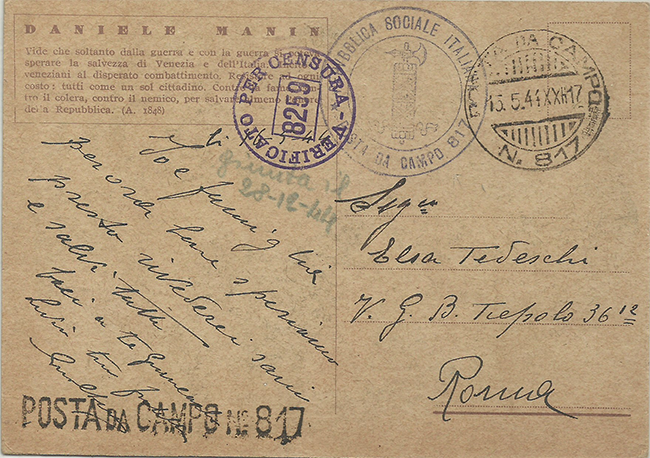 DANIELE MANIN
Vide che soltanto dalla guerra e con la guerra si
sperare la salvezza di Venezia e dell'Italia
veneziani al disperato combattimento. ogni
costo: tutti come un sol cittadino. Contro la fame
tro il colera, contro il nemico, per salvare
della Repubblica. (A. 1848)
VERIFICATO PER CENSURA
8259
REPUBBLICA SOCIALE ITALIANA
POSTA DA CAMPO 817
POSTA DA CAMPO
13.5.44 XXII 17
N. 817
giunta il
28-12-44
per ora bene speriamo
presto rivederci sani
e salvi tutti
Elsa Tedeschi
V. G. B. Tiepolo 36 12
Roma
POSTA DA CAMPO No 817